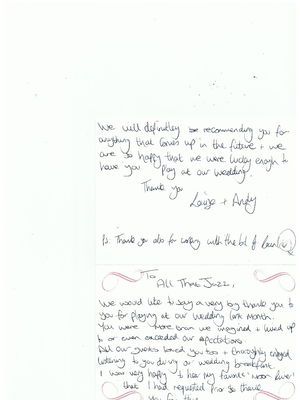 We will definitley be recommending you for
anything that comes up in the future + we
are so happy that we were lucky enogh to
have you play at our wedding.
Thank you
Louise + Andy
Ps. Thank you also for coping with the bit of rain
To
All That Jazz,
We would like to say a very big thank you to
you for playing at our wedding last Month.
You were more than we imagined + lived up
to or even exceeded our expectations
All our guests loved you too + thoroughly enjoyed
listening to you during our wedding breakfast.
I was very happy to hear my favourite 'Moon River'
that I had requested prior so thank
you for this